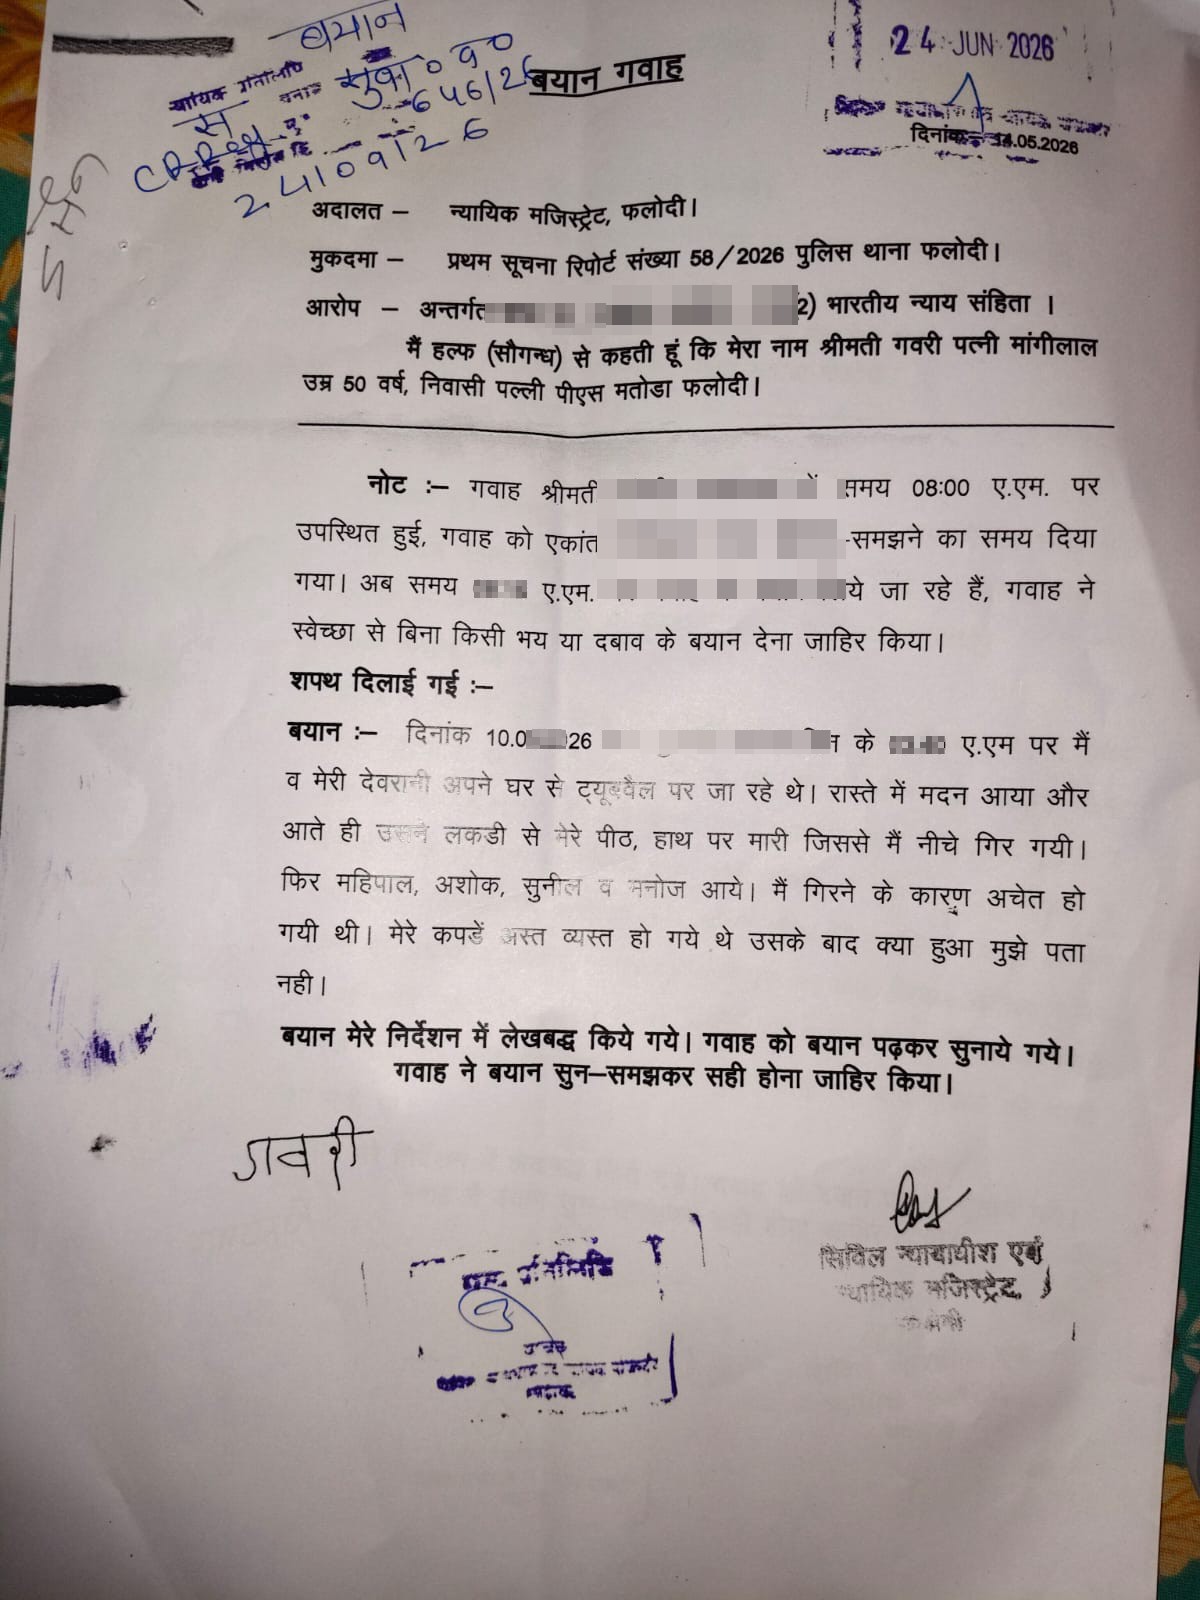 बयान
मुक० व०
646/26
24 JUN 2026
बयान गवाह
दिनांक – 14.05.2026
अदालत – न्यायिक मजिस्ट्रेट, फलोदी।
मुकदमा – प्रथम सूचना रिपोर्ट संख्या 58/2026 पुलिस थाना फलोदी।
आरोप – अन्तर्गत 2) भारतीय न्याय संहिता ।
मैं हल्फ (सौगन्ध) से कहती हूं कि मेरा नाम श्रीमती गवरी पत्नी मांगीलाल
उम्र 50 वर्ष, निवासी पल्ली पीएस मतोडा फलोदी।
नोट :– गवाह श्रीमती समय 08:00 ए.एम. पर
उपस्थित हुई, गवाह को एकांत -समझने का समय दिया
गया। अब समय ए.एम. ये जा रहे हैं, गवाह ने
स्वेच्छा से बिना किसी भय या दबाव के बयान देना जाहिर किया।
शपथ दिलाई गई :–
बयान :– दिनांक 10.0 26 के ए.एम पर मैं
व मेरी देवरानी अपने घर से ट्यूबवैल पर जा रहे थे। रास्ते में मदन आया और
आते ही उसने लकडी से मेरे पीठ, हाथ पर मारी जिससे मैं नीचे गिर गयी।
फिर महिपाल, अशोक, सुनील व मनोज आये। मैं गिरने के कारण अचेत हो
गयी थी। मेरे कपडें अस्त व्यस्त हो गये थे उसके बाद क्या हुआ मुझे पता
नही।
बयान मेरे निर्देशन में लेखबद्ध किये गये। गवाह को बयान पढ़कर सुनाये गये।
गवाह ने बयान सुन–समझकर सही होना जाहिर किया।
गवरी
सिविल न्यायाधीश एवं
न्यायिक मजिस्ट्रेट,
प्रतिलिपि